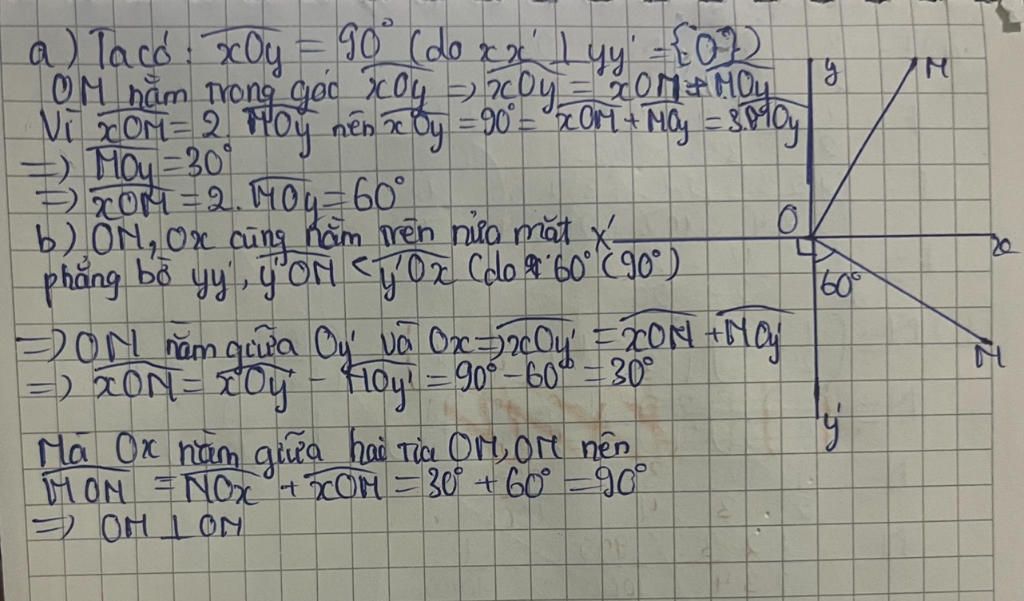 a) Ta có: xOy = 90° (do xx' ⊥ yy' = {O})
OM nằm trong góc xOy => xOy = xOM + MOy
Vì xOM = 2. MOy nên xOy = 90° = xOM + MOy = 3.MOy
=> MOy = 30°
=> xOM = 2. MOy = 60°
b) ON, Ox cùng nằm trên nửa mặt
phẳng bờ yy', y'ON < y'Ox (do 60° < 90°)
=> ON nằm giữa Oy' và Ox => xOy' = xON + NOy'
=> xON = xOy' - NOy' = 90° - 60° = 30°
Mà Ox nằm giữa hai tia OM, ON nên
MON = NOx + xOM = 30° + 60° = 90°
=> OM ⊥ ON
y
M
x'
O
x
60°
N
y'